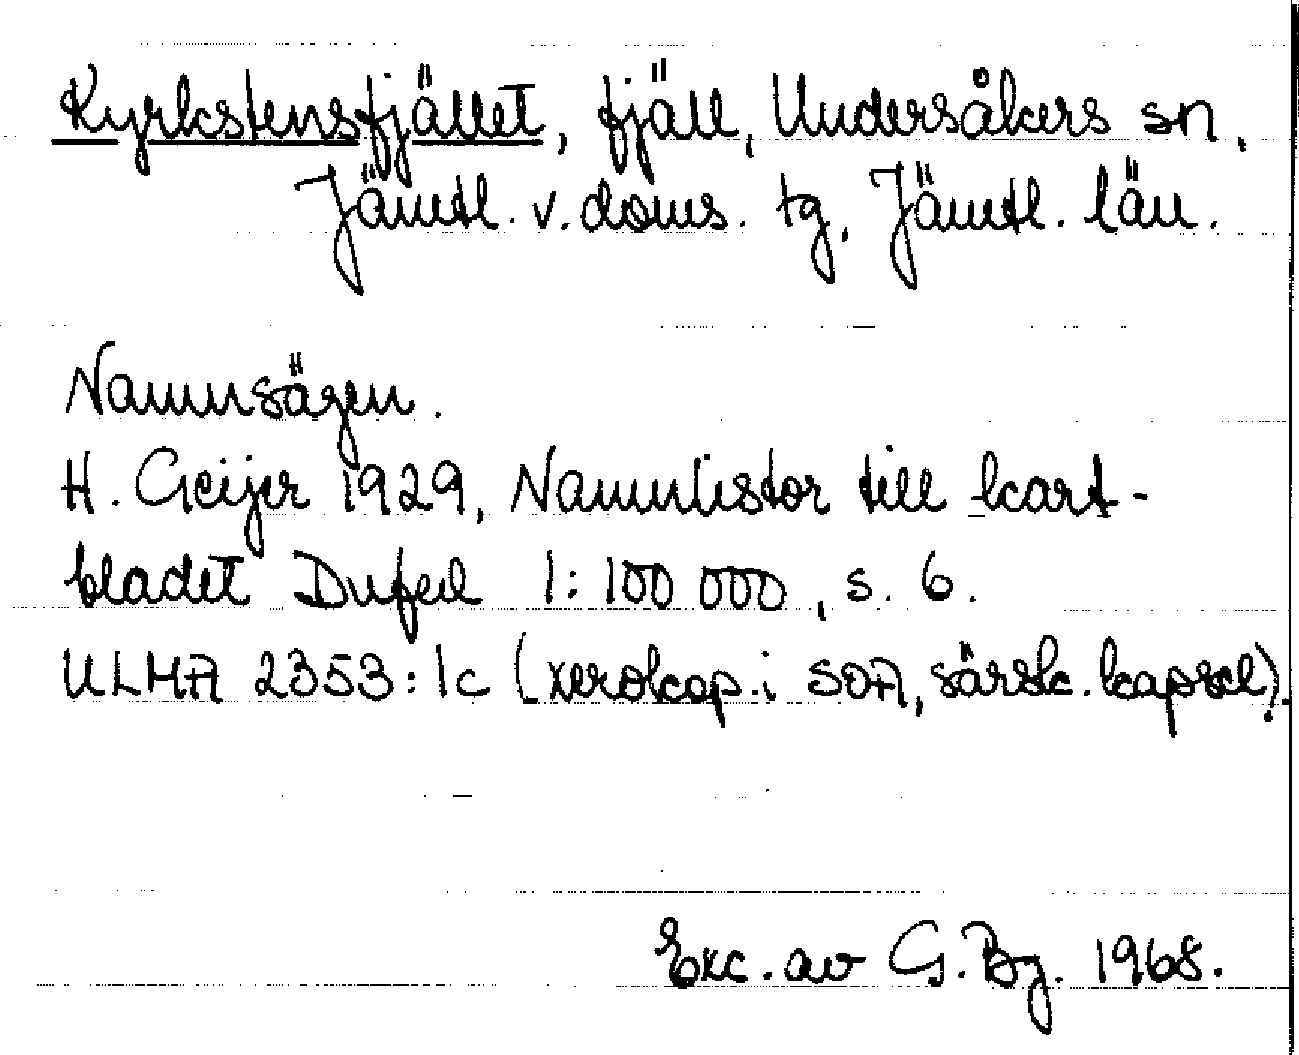 Kyrkstensfjället, fjäll, Undersåkers sn,
Jämtl. v. doms. tg, Jämtl. län.
Namnsägen.
H. Geijer 1929, Namnlistor till kart-
bladet Dufed 1:100 000, s. 6.
ULMA 2353:1c (xerokop. i SOA, särsk. kapsel).
Exc. av G. Bg. 1968.